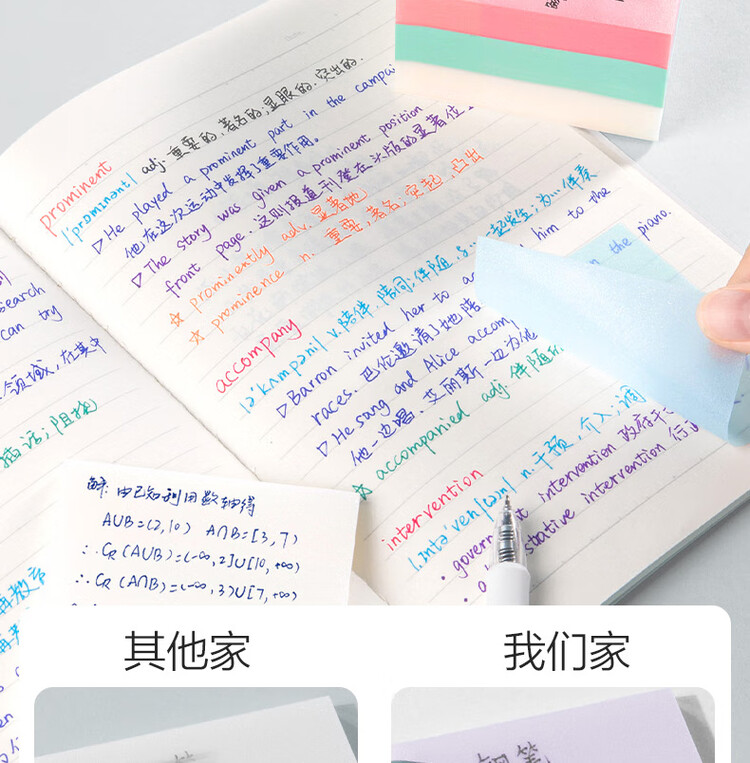 prominent
adj. 重要的,著名的;显眼的,突出的.
▷ He played a prominent part in the campai
他在这次运动中发挥了重要作用。
▷ The story was given a prominent position
front page. 这则报道刊登在头版的显著位
☆ prominently adv. 显著地
☆ prominence n. 重要,著名,突起,凸出
accompany
v. 陪伴,陪同;伴随,
一起发生;为…伴奏
▷ Barron invited her to
him to the
races. 巴伦邀请了她陪
▷ He sang and Alice accomp
the piano.
他一边唱,艾丽斯一边为他
☆ accompanied adj. 伴随
intervention
n. 干预,介入;调
intervention 政府干
intervention 行
search
can try
领域,在其中
插话;阻挠
解:由已知利用数轴得
A∪B=(2,10) A∩B=[3,7)
∴ CR(A∪B)=(-∞,2]∪[10,+∞)
∴ CR(A∩B)=(-∞,3)∪[7,+∞)
其他家
我们家
钢笔